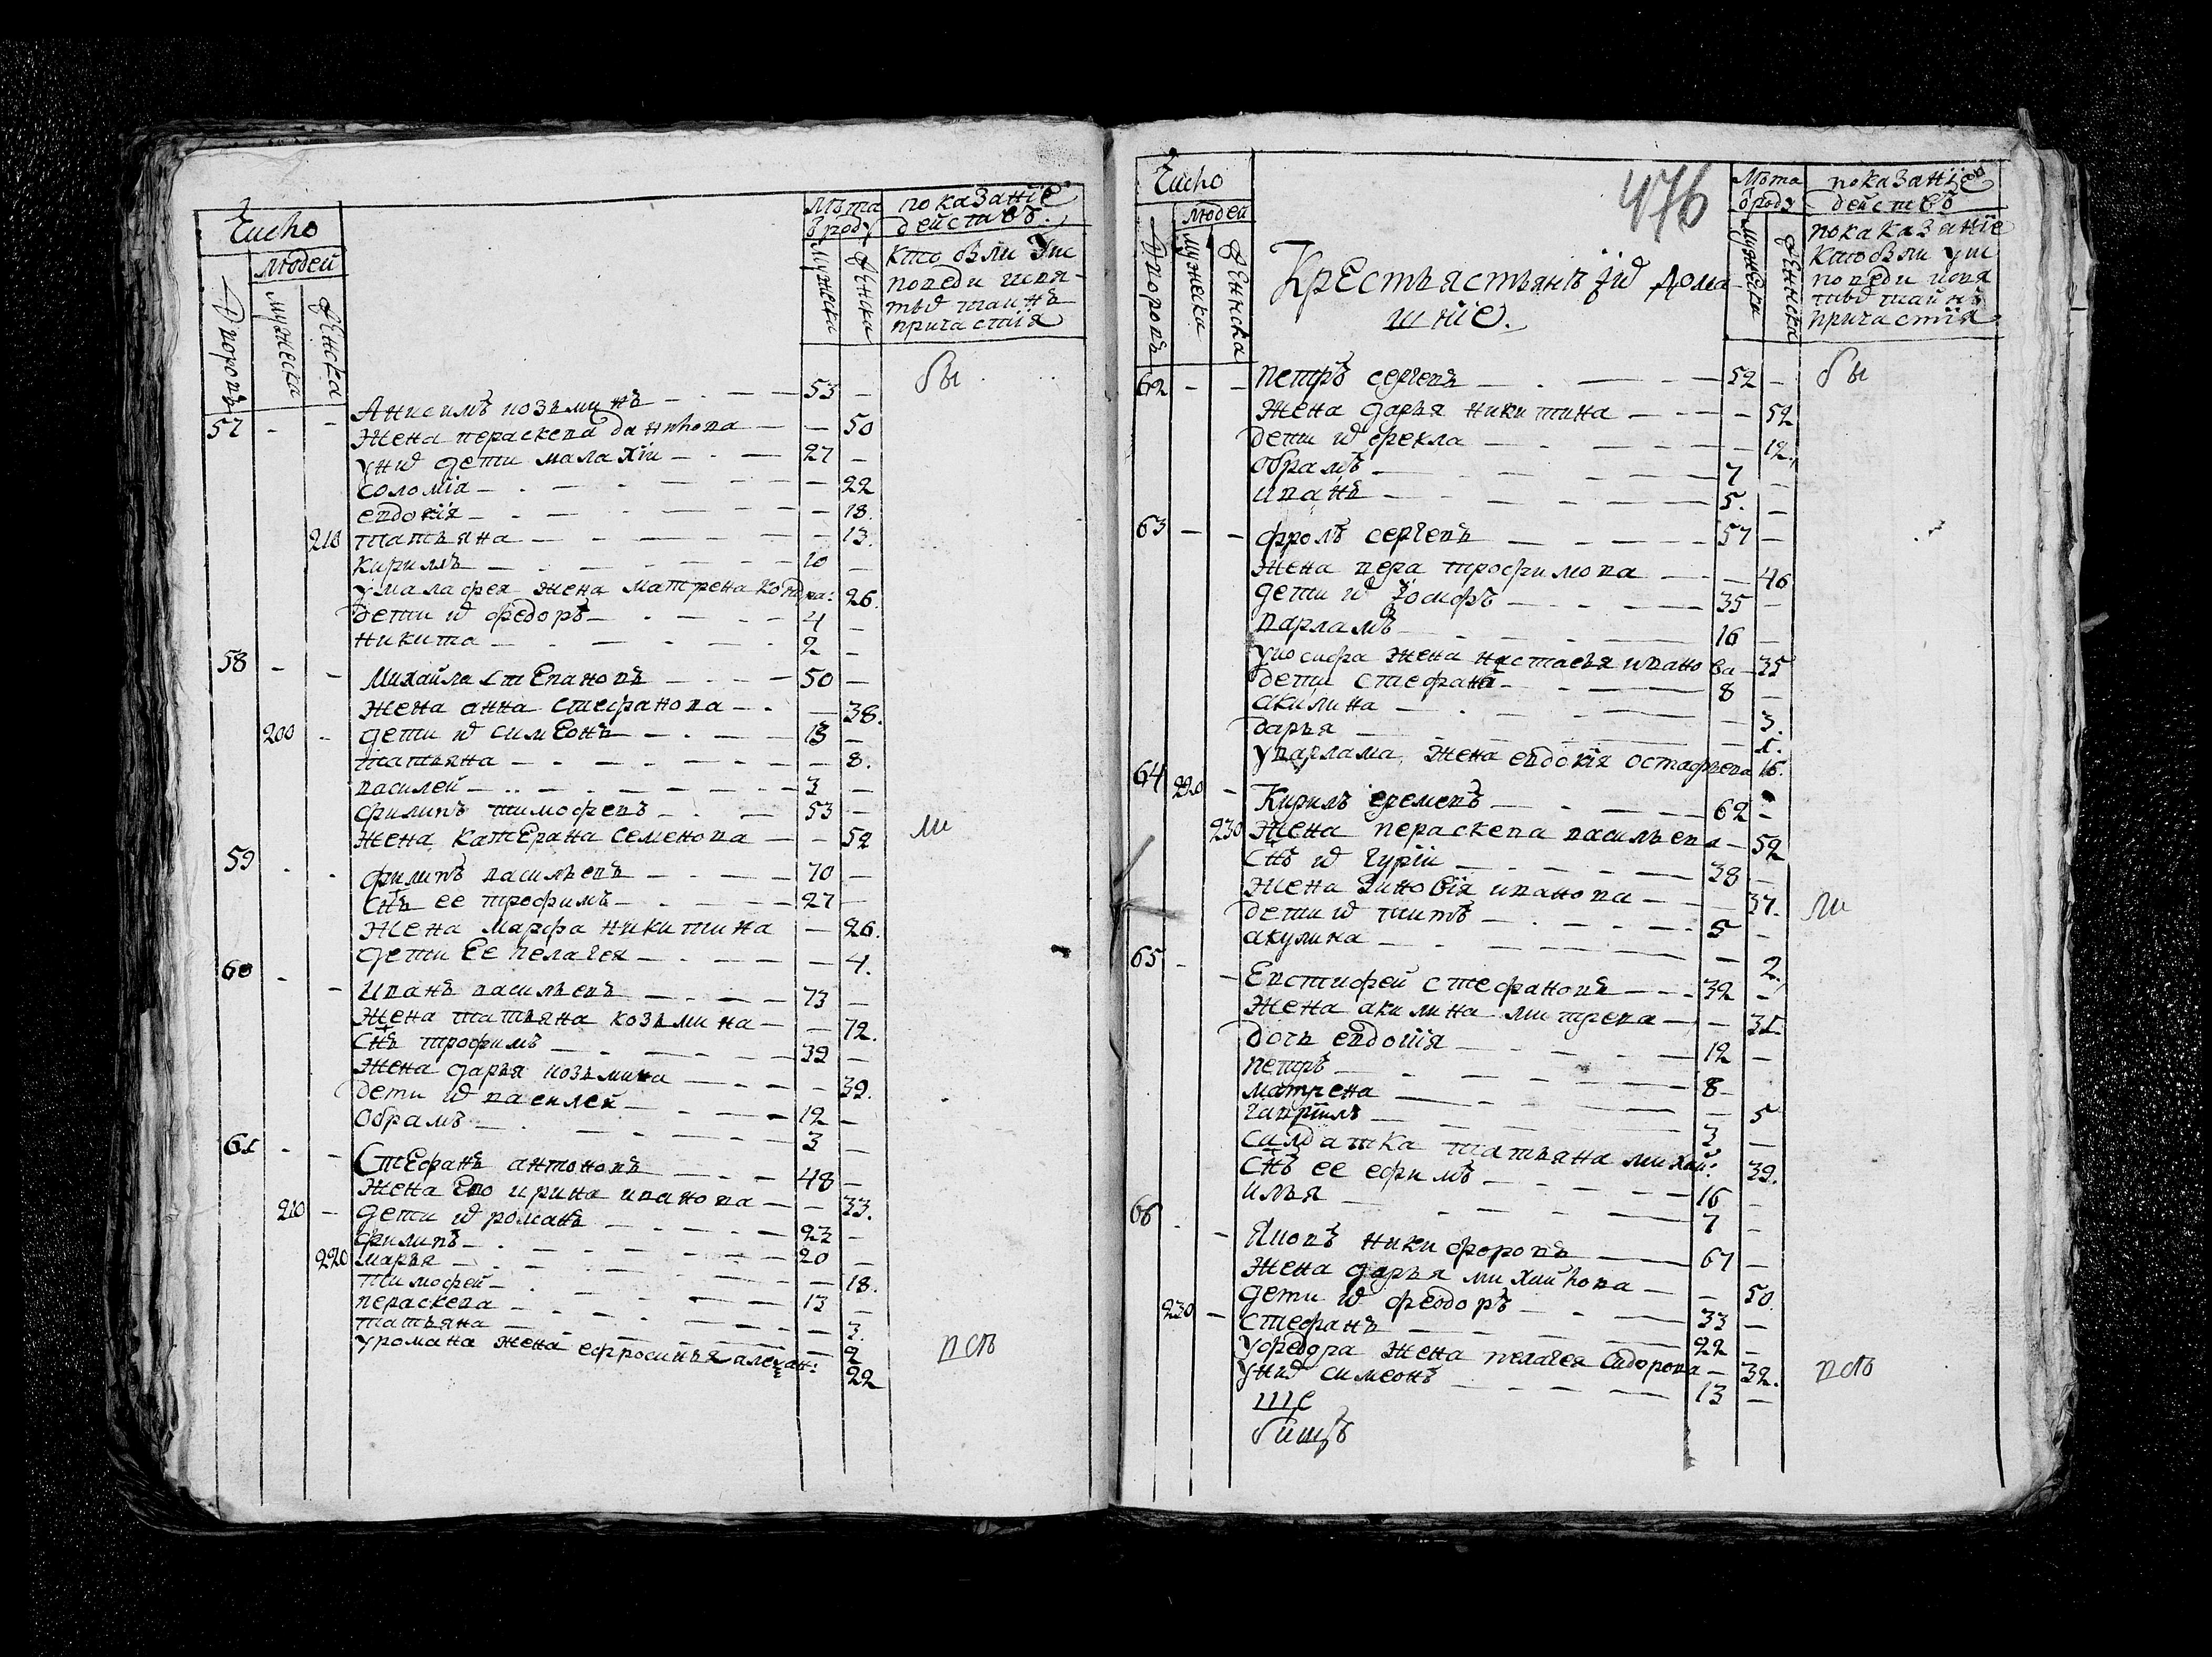 Число
людей
Дворовъ
мужеска
женска
Лѣта
в роду
мужеска
женска
показанїе
действъ.
Кто были уис
поведи исвя
тыхъ таинъ
причастїя
57 - - Анисимъ козминъ - - 53 - бы
жена параскева данилова - - 50
у нихъ дети малахїи - - 27 -
соломїя - - 22
евдокїя - - 18.
210 татьяна - - 13.
Кирилъ - 10 -
у малафея жена матрена кондра: 26.
дети их федоръ - 4 -
никита - 2 -
58 - - Михайла степановъ - 50 -
жена анна стефанова - - 38.
200 - дети их симеонъ - 13 -
татьяна - - 8.
василей - 3 -
филипъ тимофеевъ - 53 -
жена катерина семенова - - 52 ли
59 - - филипъ васильевъ - 70 -
снъ ее трофимъ - 27 -
жена марфа никитина - 26.
дети ее пелагея - - 4.
60 - - Иванъ васильевъ - 73 -
жена татьяна козьмина - - 72.
снъ трофимъ - 39 -
жена дарья козьмина - - 39.
дети их василей - 12 -
обрамъ - 3 -
61 - - Стефанъ антоновъ - 48 -
жена Ево ирина иванова - - 33.
210 - дети их романъ - 23 -
филипъ - 20 -
220 марья - - 18.
тимофей - 13 -
пераскева - - 3.
татьяна - - 2
у романа жена ефросинья алексан: 22 псо
476
Число
людей
Дворовъ
мужеска
женска
Крестьястьянъ їих дома
шнїе.
Лѣта
в роду
мужеска
женска
показанїе
действъ
показанїе
кто были уис
поведи исвя
тых тайнъ
причастїя
62 - - петръ сергеевъ - 52 - бы
жена дарья никитина - - 52
дети их фекла - - 12.
обрамъ - 7 -
иванъ - 5. -
63 - - фролъ сергеевъ - 57 -
жена вера трофимова - - 46
дети их їосифъ - 35 -
варламъ - 16 -
у иосифа жена настасья иванова - 35
дети стефанъ - 8 -
акилина - - 3.
дарья - - 1.
у варлама жена евдокїя остафьева 16.
64 220 - Кирилъ еремевъ - 62 -
230 жена пераскева васильева - 52
снъ их гурїи - 38 -
жена зиновїя иванова - - 37. ли
дети их титъ - 5 -
акулина - - 2.
65 - - Евстифей стефановъ - 32 -
жена акилина митрева - - 31
дочь евдокїя - 12 -
петръ - 8 -
матрена - - 5
гаврилъ - 3 -
салдатка татьяна михай: 39.
снъ ее ефимъ - 16 -
илья - 7 -
66 - - Яковъ никифоровъ - 67 -
жена дарья михайлова - - 50
230 - дети их феодоръ - 33 -
стефанъ - 22 -
у федора жена пелагея сидорова - 32. псо
у них симеонъ - 13 -